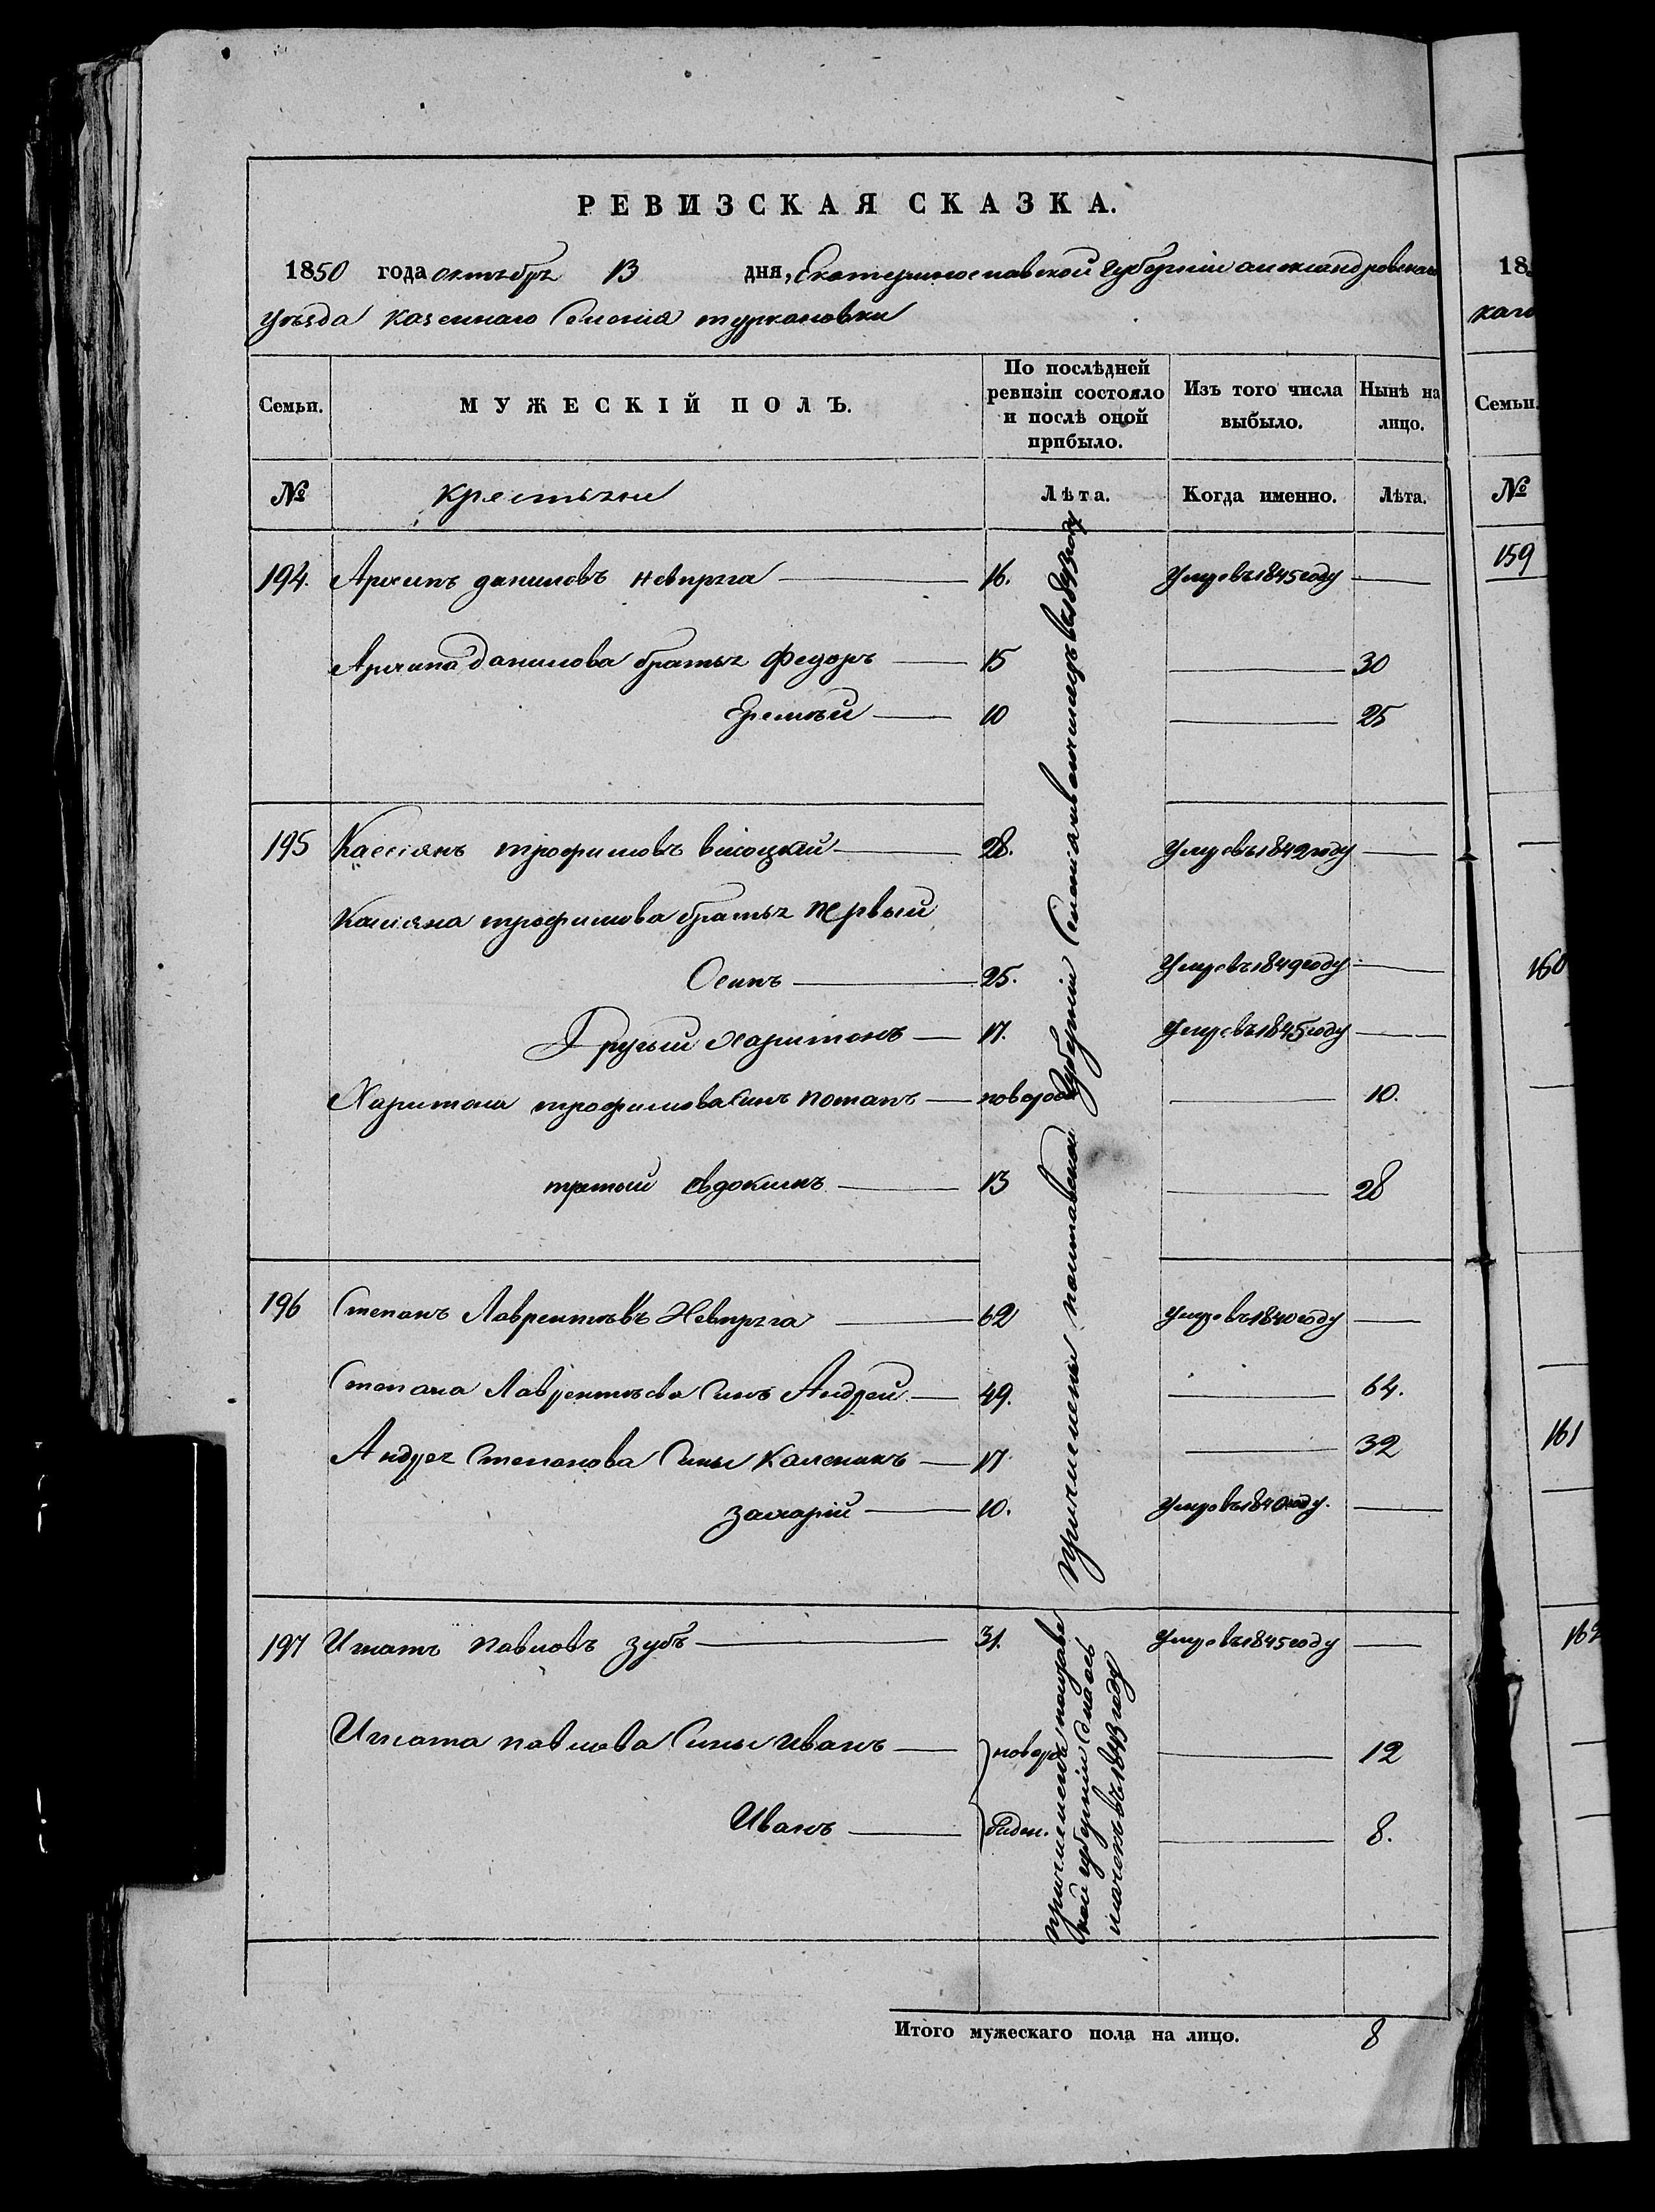 РЕВИЗСКАЯ СКАЗКА.
1850 года октябрь 13 дня, Екатеринославской губерніи александровскаго
уѣзда казеннаго Селенія туркановки
Семьи.
МУЖЕСКІЙ ПОЛЪ.
По послѣдней ревизіи состояло и послѣ оной прибыло.
Изъ того числа выбыло.
Нынѣ на лицо.
№
крестьяне
Лѣта.
Когда именно.
Лѣта.
194. Архипъ даниловъ невпряга 16. Умръ въ 1845 году
Архипа данилова братья Федоръ 15 30
Еремѣй 10 25
195 Кассіянъ трофимовъ височкій 28. Умръ въ 1842 году
Касіяна трофимова братья первый
Осипъ 25. Умръ въ 1849 году
Другий Харитонъ 17. Умръ въ 1845 году
Харитона трофимова Синъ потапъ новорож 10.
третий Евдокимъ 13 28
196 Степанъ Лаврентьевъ Невпряга 62 Умръ въ 1840 году
Степана Лаврентьева Синъ Андрей 49. 64.
Андрея Степанова Сины Каленикъ 17. 32
захарій 10. Умръ въ 1840 году.
причислены полтавской губерніи въ 1843 году
197 Игнатъ павловъ зубъ 31. Умръ въ 1845 году
Игната павлова Сины иванъ новорож 12
Иванъ 8.
причисленъ полтавс
кой губерніи
въ 1843 году
Итого мужескаго пола на лицо. 8
18
каго
Семьи.
№
159
160
161
162